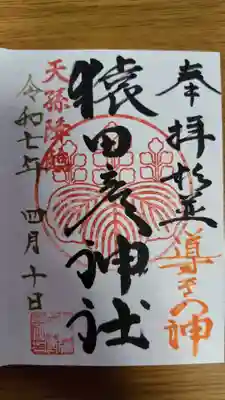 奉拝
導きの神
猿田彦神社
天孫降臨
令和七年 四月十日